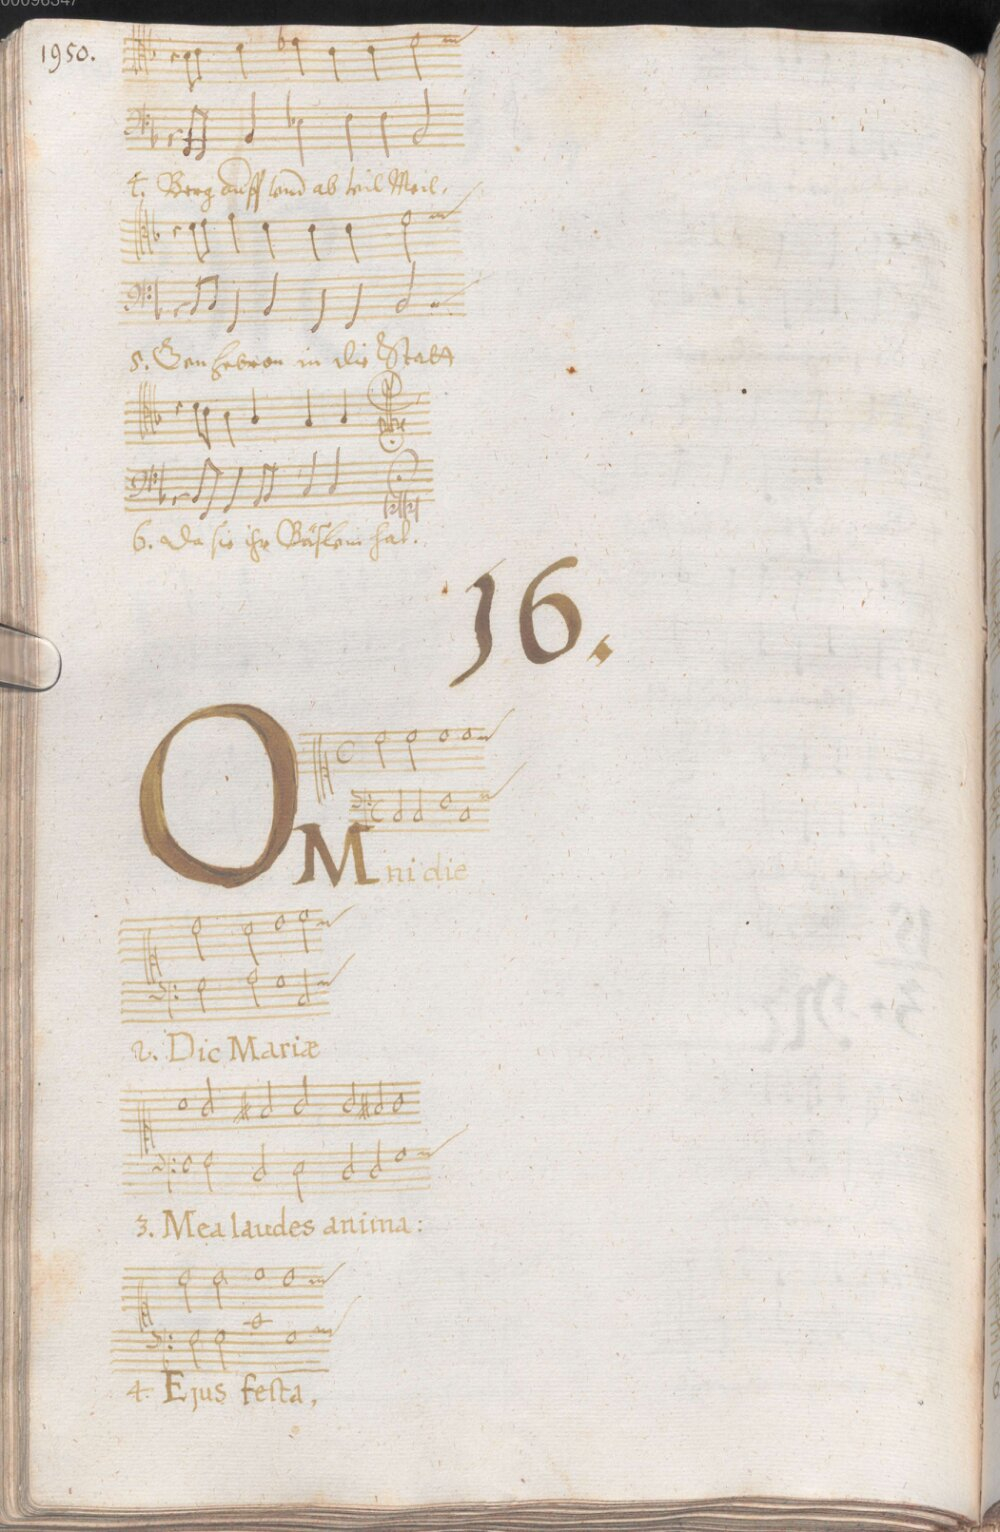 00096347
1950.
4. Berg auff und ab viel Meil,
5. Gen Hebron in die Statt
6. Da sie ihr Bäslein hat.
16.
OMni die
2. Dic Mariæ
3. Mea laudes anima:
4. Ejus festa,